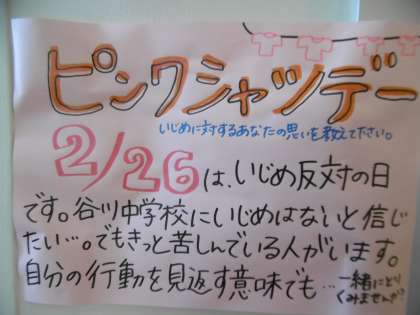 ピンクシャツデー
いじめに対するあなたの思いを教えて下さい。
2/26は、いじめ反対の日
です。谷川中学校にいじめはないと信じ
たい…。でもきっと苦しんでいる人がいます。
自分の行動を見返す意味でも…一緒にとり
くみませんか?